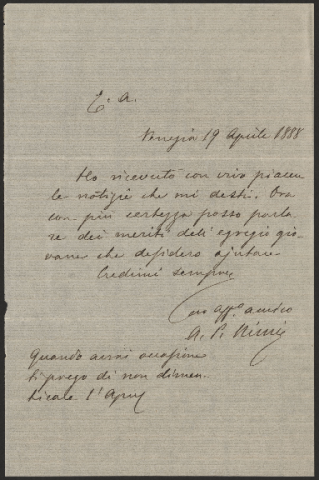 C. A.
Venezia 19 Aprile 1888
Ho ricevuto con vivo piacere
le notizie che mi desti. Ora
con più certezza posso parla
re dei meriti dell'egregio gio
vane che desidero ajutare
Credimi sempre
Tuo aff.º amico
A. P. Ninni
Quando avrai occasione
ti prego di non dimen
ticare l'